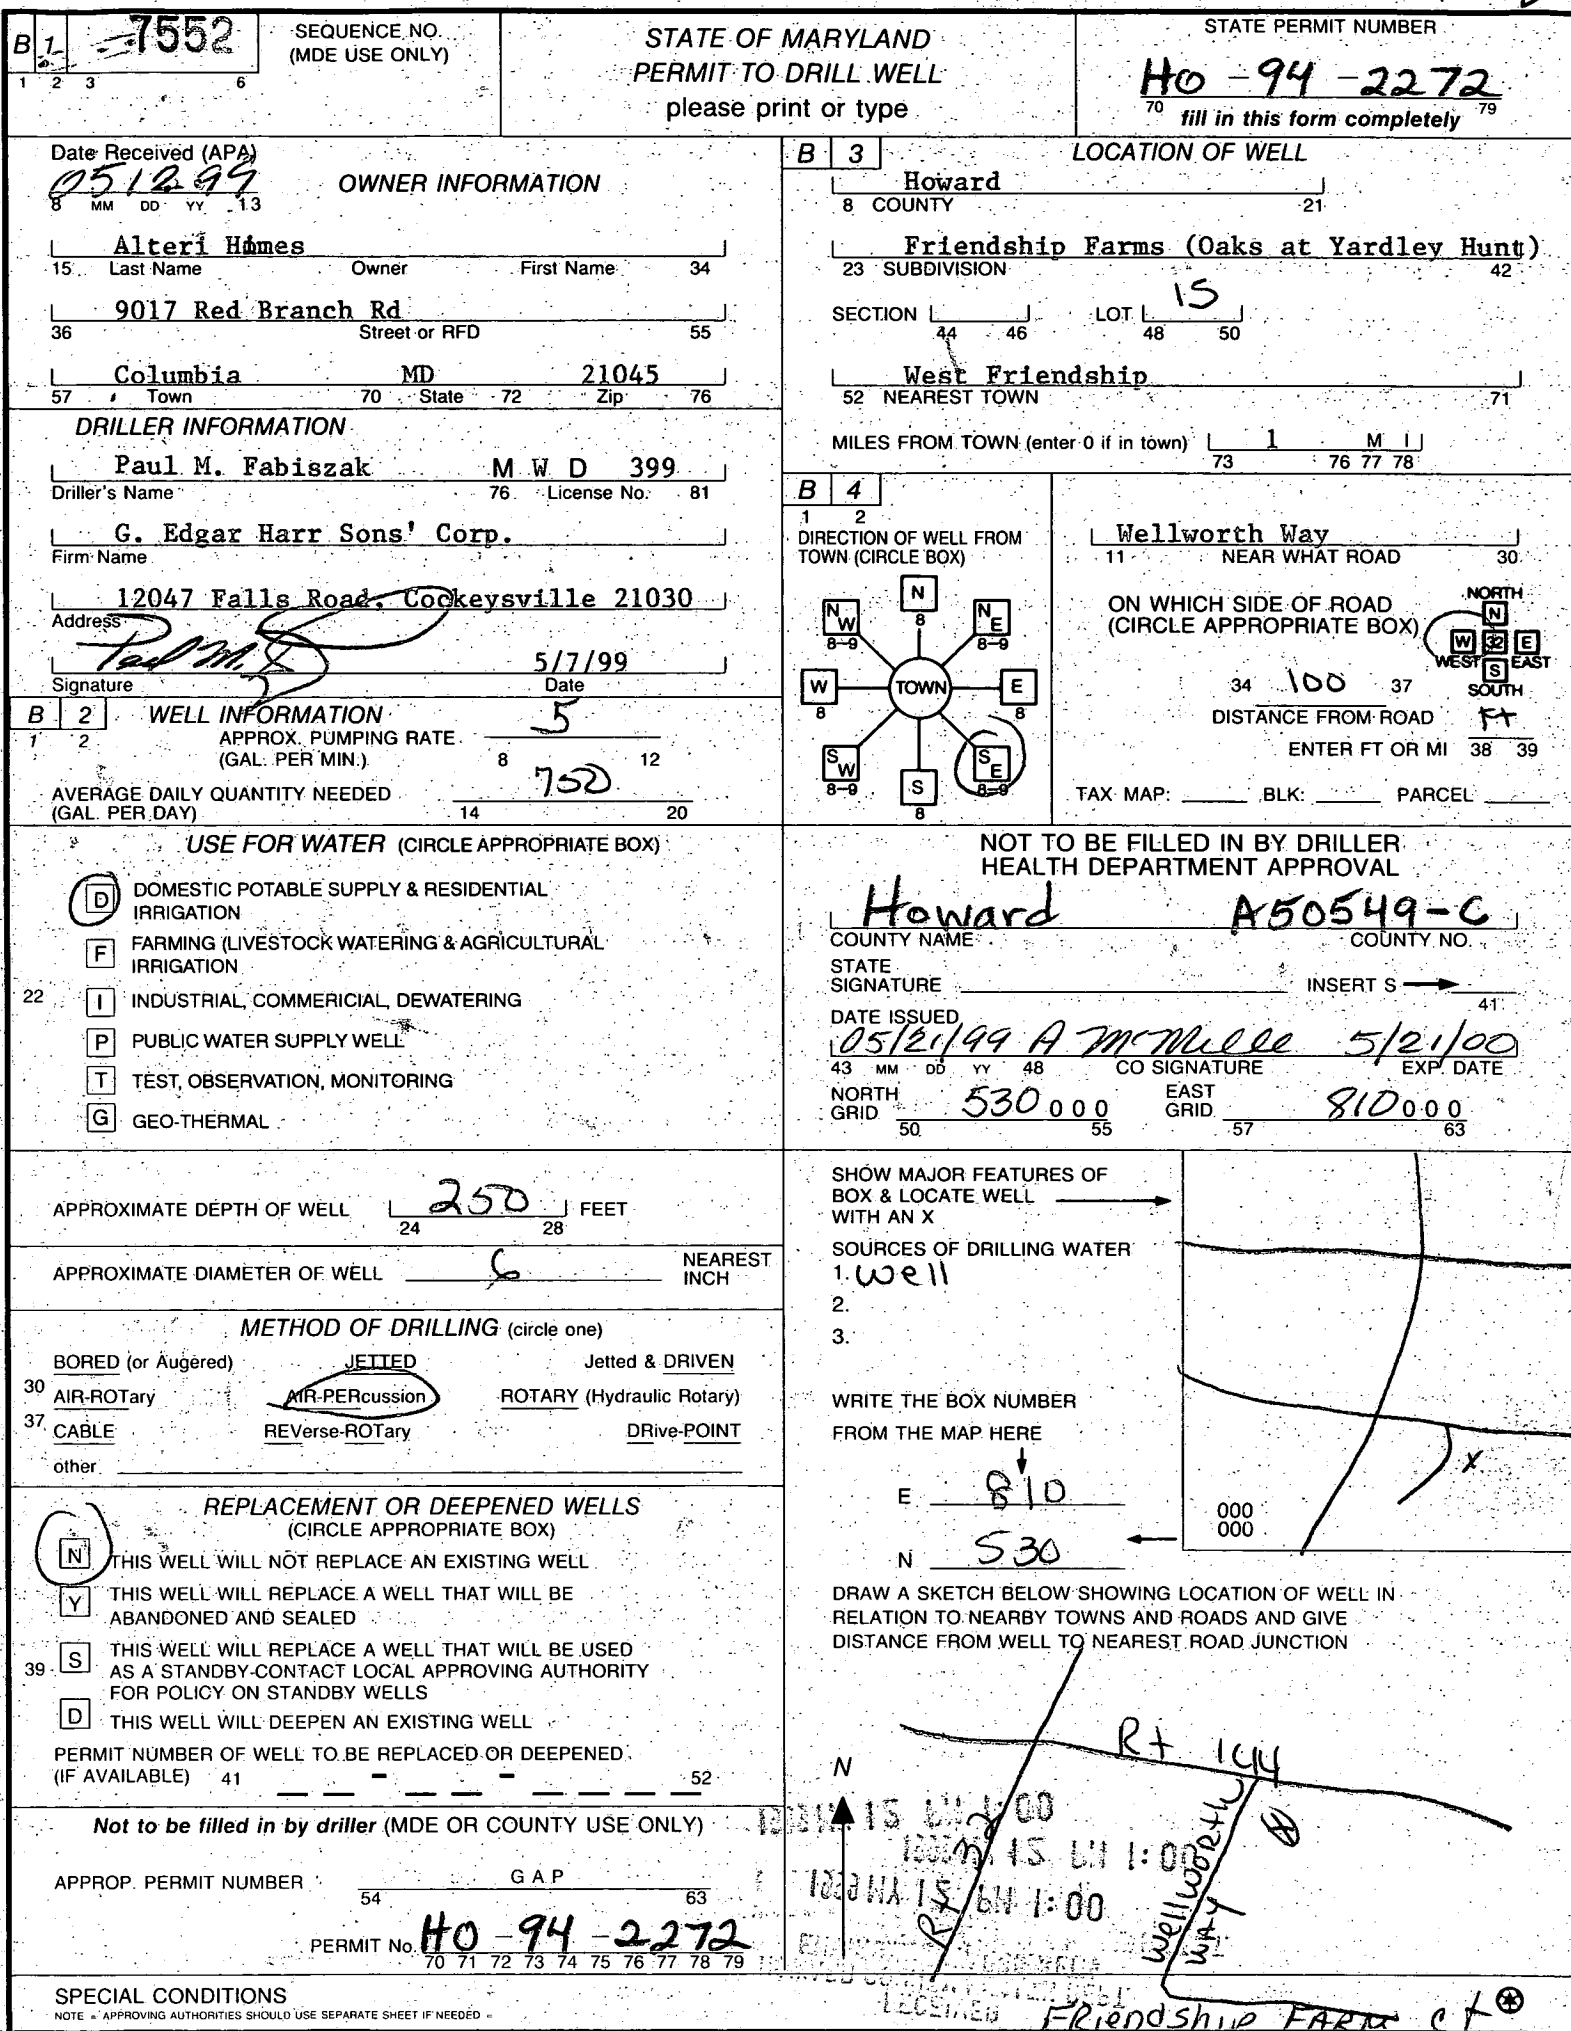 B 1 7552
1 2 3 6
SEQUENCE NO.
(MDE USE ONLY)
STATE OF MARYLAND
PERMIT TO DRILL WELL
please print or type
STATE PERMIT NUMBER
HO - 94 - 2272
70 fill in this form completely 79
Date Received (APA)
051299
8 MM DD YY 13
OWNER INFORMATION
Alteri Homes
15 Last Name Owner First Name 34
9017 Red Branch Rd
36 Street or RFD 55
Columbia MD 21045
57 Town 70 State 72 Zip 76
DRILLER INFORMATION
Paul M. Fabiszak M W D 399
Driller's Name 76 License No. 81
G. Edgar Harr Sons' Corp.
Firm Name
12047 Falls Road, Cockeysville 21030
Address
Paul M. 5/7/99
Signature Date
B 2 WELL INFORMATION
1 2
APPROX. PUMPING RATE 5
(GAL. PER MIN.) 8 12
AVERAGE DAILY QUANTITY NEEDED 750
(GAL. PER DAY) 14 20
USE FOR WATER (CIRCLE APPROPRIATE BOX)
D DOMESTIC POTABLE SUPPLY & RESIDENTIAL
IRRIGATION
F FARMING (LIVESTOCK WATERING & AGRICULTURAL
IRRIGATION
22 I INDUSTRIAL, COMMERICIAL, DEWATERING
P PUBLIC WATER SUPPLY WELL
T TEST, OBSERVATION, MONITORING
G GEO-THERMAL
APPROXIMATE DEPTH OF WELL 250 FEET
24 28
APPROXIMATE DIAMETER OF WELL 6 NEAREST
INCH
METHOD OF DRILLING (circle one)
BORED (or Augered) JETTED Jetted & DRIVEN
30 AIR-ROTary AIR-PERcussion ROTARY (Hydraulic Rotary)
37 CABLE REVerse-ROTary DRive-POINT
other
REPLACEMENT OR DEEPENED WELLS
(CIRCLE APPROPRIATE BOX)
N THIS WELL WILL NOT REPLACE AN EXISTING WELL
Y THIS WELL WILL REPLACE A WELL THAT WILL BE
ABANDONED AND SEALED
39 S THIS WELL WILL REPLACE A WELL THAT WILL BE USED
AS A STANDBY-CONTACT LOCAL APPROVING AUTHORITY
FOR POLICY ON STANDBY WELLS
D THIS WELL WILL DEEPEN AN EXISTING WELL
PERMIT NUMBER OF WELL TO BE REPLACED OR DEEPENED
(IF AVAILABLE) 41 - - 52
Not to be filled in by driller (MDE OR COUNTY USE ONLY)
APPROP. PERMIT NUMBER G A P
54 63
PERMIT No. HO - 94 - 2272
70 71 72 73 74 75 76 77 78 79
SPECIAL CONDITIONS
NOTE = APPROVING AUTHORITIES SHOULD USE SEPARATE SHEET IF NEEDED =
B 3 LOCATION OF WELL
Howard
8 COUNTY 21
Friendship Farms (Oaks at Yardley Hunt)
23 SUBDIVISION 42
SECTION 44 46 LOT 15
48 50
West Friendship
52 NEAREST TOWN 71
MILES FROM TOWN (enter 0 if in town) 1 M I
73 76 77 78
B 4
1 2
DIRECTION OF WELL FROM
TOWN (CIRCLE BOX)
N
8
N W
8-9
N E
8-9
W
8
TOWN
E
8
S W
8-9
S
8
S E
8-9
Wellworth Way
11 NEAR WHAT ROAD 30
ON WHICH SIDE OF ROAD
(CIRCLE APPROPRIATE BOX)
NORTH
N
W 32 E
WEST S EAST
SOUTH
34 100 37
DISTANCE FROM ROAD Ft
ENTER FT OR MI 38 39
TAX MAP: BLK: PARCEL
NOT TO BE FILLED IN BY DRILLER
HEALTH DEPARTMENT APPROVAL
Howard A50549-C
COUNTY NAME COUNTY NO.
STATE
SIGNATURE INSERT S
41
DATE ISSUED
05/21/99 A McMille 5/21/00
43 MM DD YY 48 CO SIGNATURE EXP. DATE
NORTH
GRID 530 0 0 0
50 55
EAST
GRID 810 0 0 0
57 63
SHOW MAJOR FEATURES OF
BOX & LOCATE WELL
WITH AN X
SOURCES OF DRILLING WATER
1. well
2.
3.
WRITE THE BOX NUMBER
FROM THE MAP HERE
E 810
N 530
X
000
000
DRAW A SKETCH BELOW SHOWING LOCATION OF WELL IN
RELATION TO NEARBY TOWNS AND ROADS AND GIVE
DISTANCE FROM WELL TO NEAREST ROAD JUNCTION
N
Rt 144
Rt 32
Wellworth
Way
1999 MY 12 PM 1:00
RECEIVED
Friendship FARM Ct